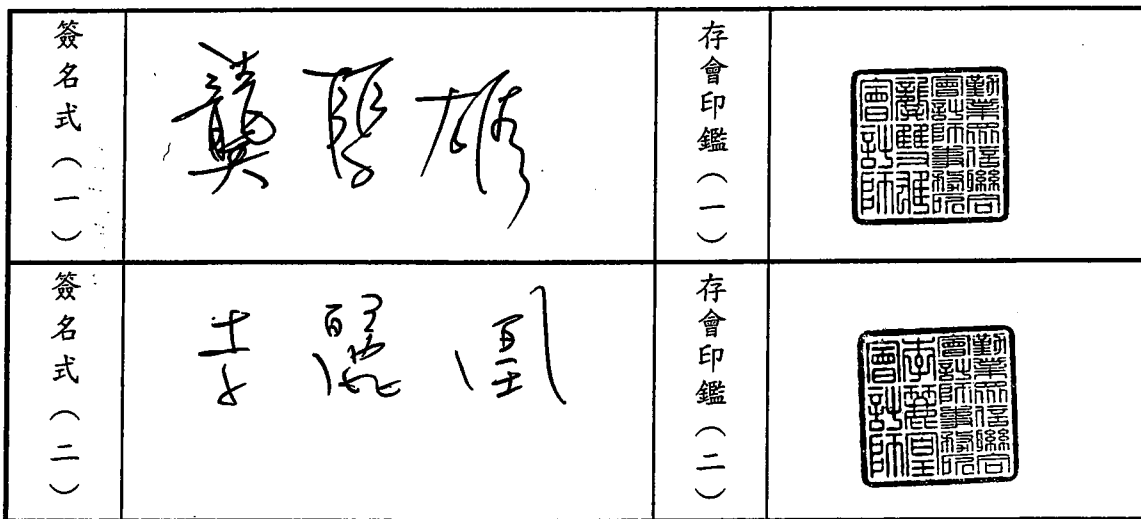 簽名式(一)
龔雙雄
存會印鑑(一)
勤業眾信聯合
會計師事務所
龔雙雄
會計師
簽名式(二)
李麗凰
存會印鑑(二)
勤業眾信聯合
會計師事務所
李麗凰
會計師